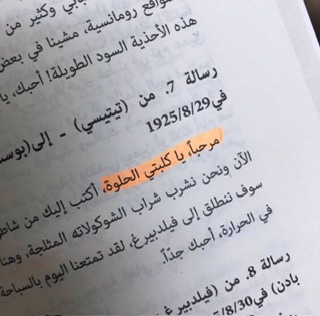 مواقع رومانسية، مشينا في بعض
هذه الأحذية السود الطويلة! أحبك، يا
رسالة 7. من (تيتيسي) - إلى (بوسـ
في 1925/8/29
مرحباً، يا كلبتي الحلوة، أكتب إليك من شاطـ
الآن ونحن نشرب شراب الشوكولاته المثلجة، وهنا
سوف ننطلق إلى فيلدبيرغ، لقد تمتعنا اليوم بالسباحة
في الحرارة، أحبك جدّاً.
رسالة 8. من (فيلدبيرغ
بادن) في